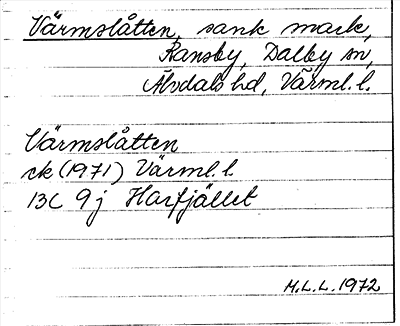 Värmslåtten, sank mark,
Ransby, Dalby sn,
Älvdals hd, Värml. l.
Värmslåtten
ek (1971) Värml. l.
13C 9j Harfjället
M.L.L. 1972